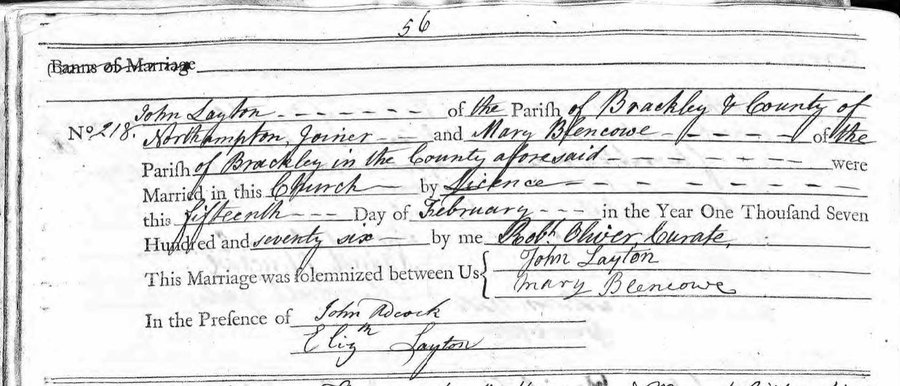 56
Banns of Marriage
John Layton - - - - - - - of the Parish of Brackley & County of
No 218. Northampton, Joiner - - - and Mary Blencowe - - - - - of the
Parish of Brackley in the County aforesaid - - - - - - - were
Married in this Church - by Licence - - - - - - - -
this fifteenth - - - Day of February - - - in the Year One Thouſand Seven
Hundred and seventy six - by me Robt. Oliver, Curate,
This Marriage was ſolemnized between Us { John Layton
Mary Blencowe
In the Preſence of John Adcock
Elizth Layton